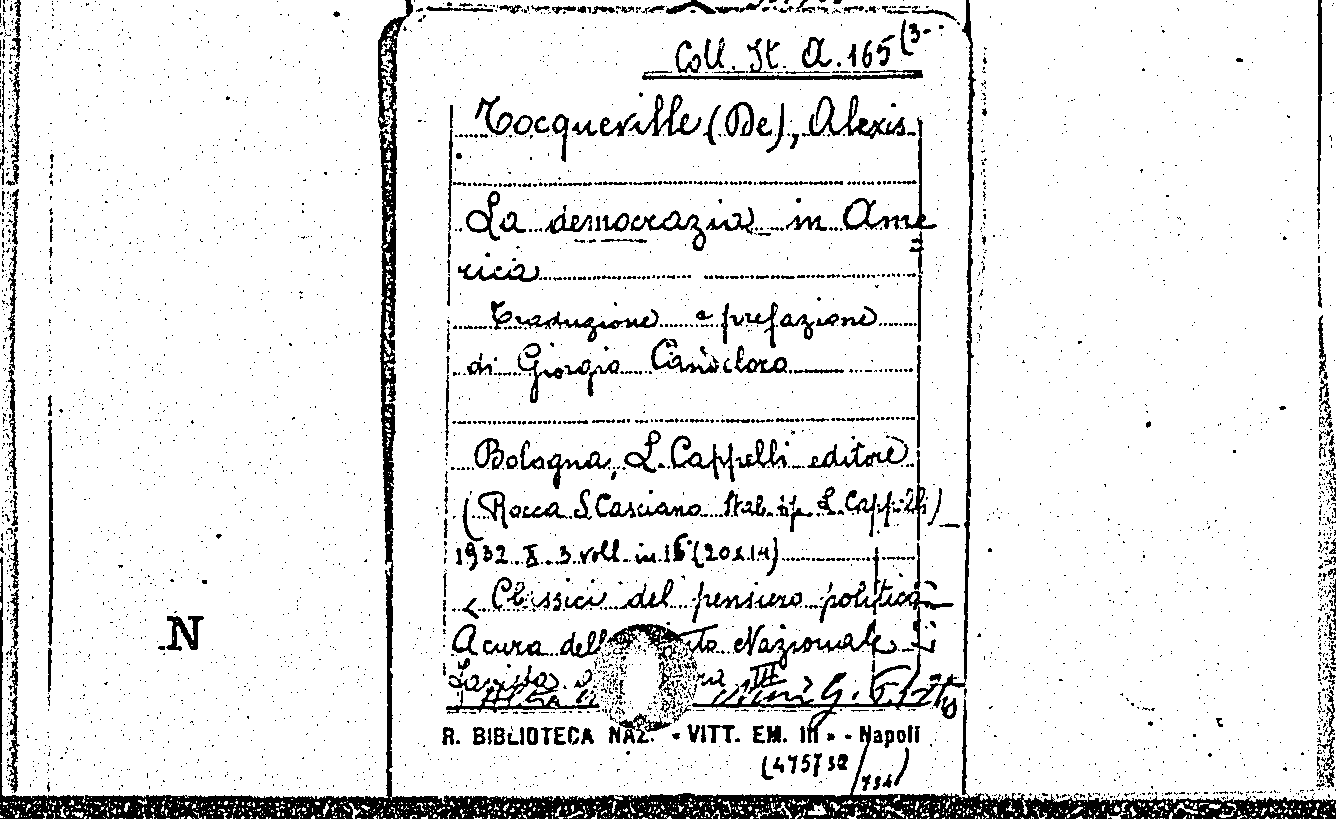 Coll. It. A. 165 (3-
Tocqueville (De), Alexis
La democrazia in Ame
rica
Traduzione e prefazione
di Giorgio Candeloro
Bologna, L. Cappelli editore
(Rocca S. Casciano Stab. tip. L. Cappelli)
1932 X. 3 voll. in 16° (20x14)
< Classici del pensiero politico
A cura dell Nazionale
III
R. BIBLIOTECA NAZ. « VITT. EM. III » - Napoli
(475732/734)
N